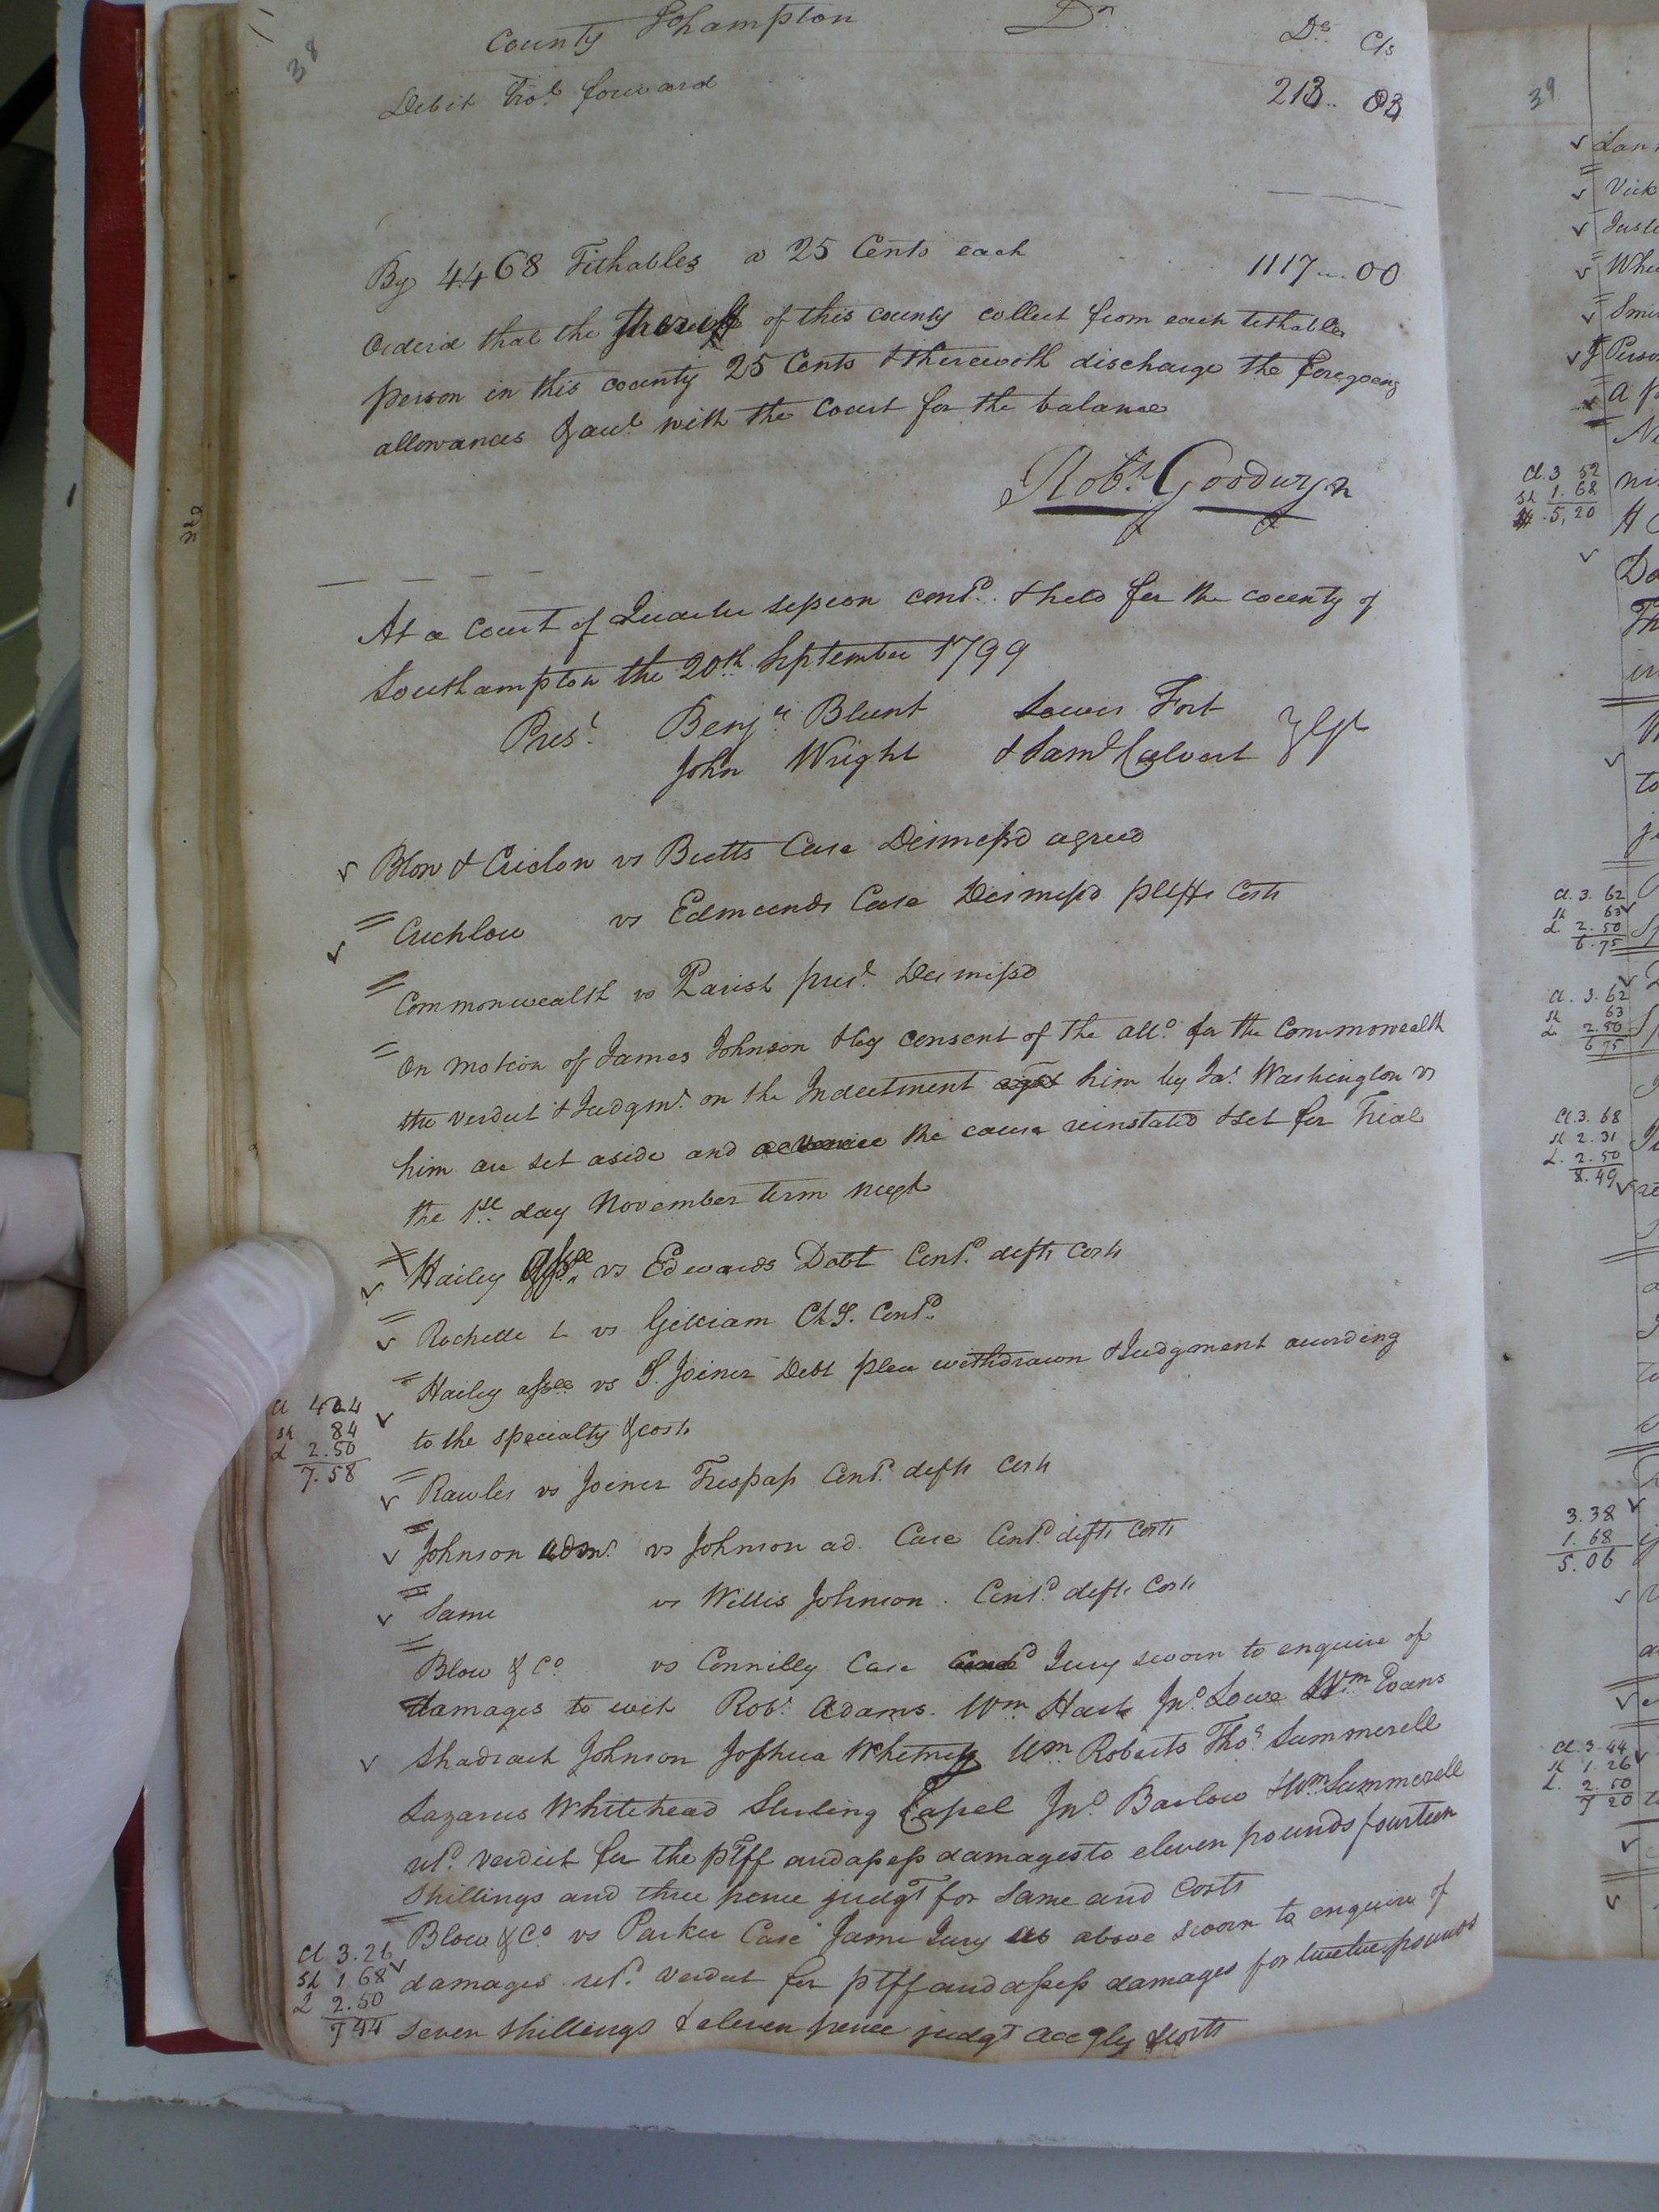 38
County Shampton Dr. Ds. Cts
Debit bro.t forward 213.. 03
By 4468 Tithables a 25 Cents each 1117 .... 00
Orderd that the Sheriff of this county collect from each tithable
person in this county 25 Cents & therewith discharge the foregoing
allowances & acct with the Court for the balance
Robt. Goodwyn
At a Court of Quarter session cont.d & held for the county of
Southampton the 20th September 1799
Prest. Benja. Blunt Lewis Fort
John Wright & Saml Calvert
v Blow & Crichlow vs Butts Case Dismissd agreed
v Crichlow vs Edmunds Case Dismissd pltffs Costs
Commonwealth vs Parish prest. Dismissd
On motion of James Johnson & by consent of the att.o for the Commonwealth
the verdict & Judgmt. on the Indictment agst him by Jas. Washington vs
him are set aside and the cause reinstated & set for Trial
the 1st day November term next
v Hailey assee vs Edwards Debt Cont.d defts Costs
v Rochelle vs Gilliam Ch I. Cont.d
v Hailey assee vs J. Joiner Debt plea withdrawn & Judgment according
to the specialty & costs
cl 4.24
sh 84
L 2.50
7.58
v Rawles vs Joiner Trespass Cont.d defts Costs
v Johnson adm.r vs Johnson ad. Case Cont.d defts Costs
v Same vs Willis Johnson. Cont.d defts Costs
Blow & Co. vs Connilly Case Jury sworn to enquire of
damages to wit Robt. Adams. Wm Hart Jno. Lowe Wm Evans
v Shadrack Johnson Joshua Whitney Wm Roberts Thos. Summerell
Lazarus Whitehead Sterling Capel Jno. Barlow & Wm Summerell
retd. verdict for the ptff and assess damages to eleven pounds fourteen
shillings and three pence judgt for same and Costs
Blow & Co vs Parker Case Same Jury as above sworn to enquire of
damages. retd. verdict for ptff and assess damages for twelve pounds
seven shillings & eleven pence judgt accgly & costs
cl 3.26
sh 1.68 v
L 2.50
7 44
39
cl. 3 52
sh 1. 68
5,20
cl. 3. 62
sh 63
L. 2. 50
6. 75
cl. 3. 62
sh 63
L. 2.50
6 75
cl. 3. 68
sh 2. 31
L. 2. 50
8. 49
3. 38
1. 68
5. 06
cl. 3.44
sh 1. 26
L. 2. 50
7 20